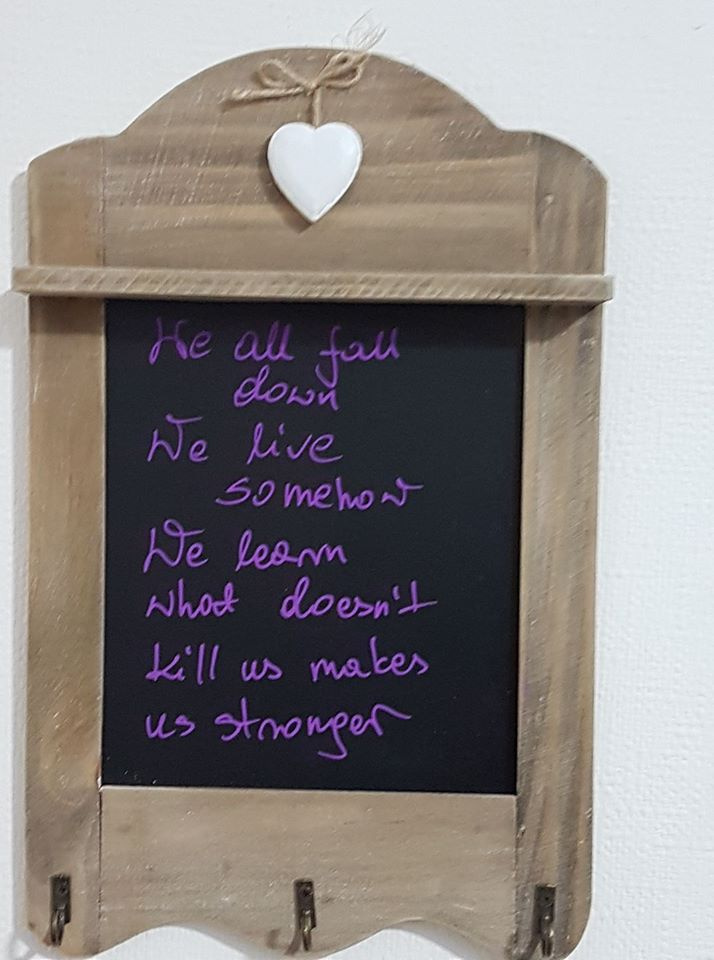 We all fall
down
We live
somehow
We learn
what doesn't
kill us makes
us stronger